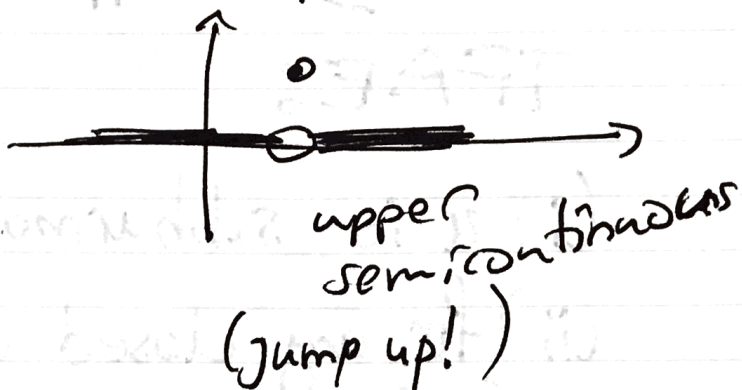 upper
semicontinuous
(jump up!)